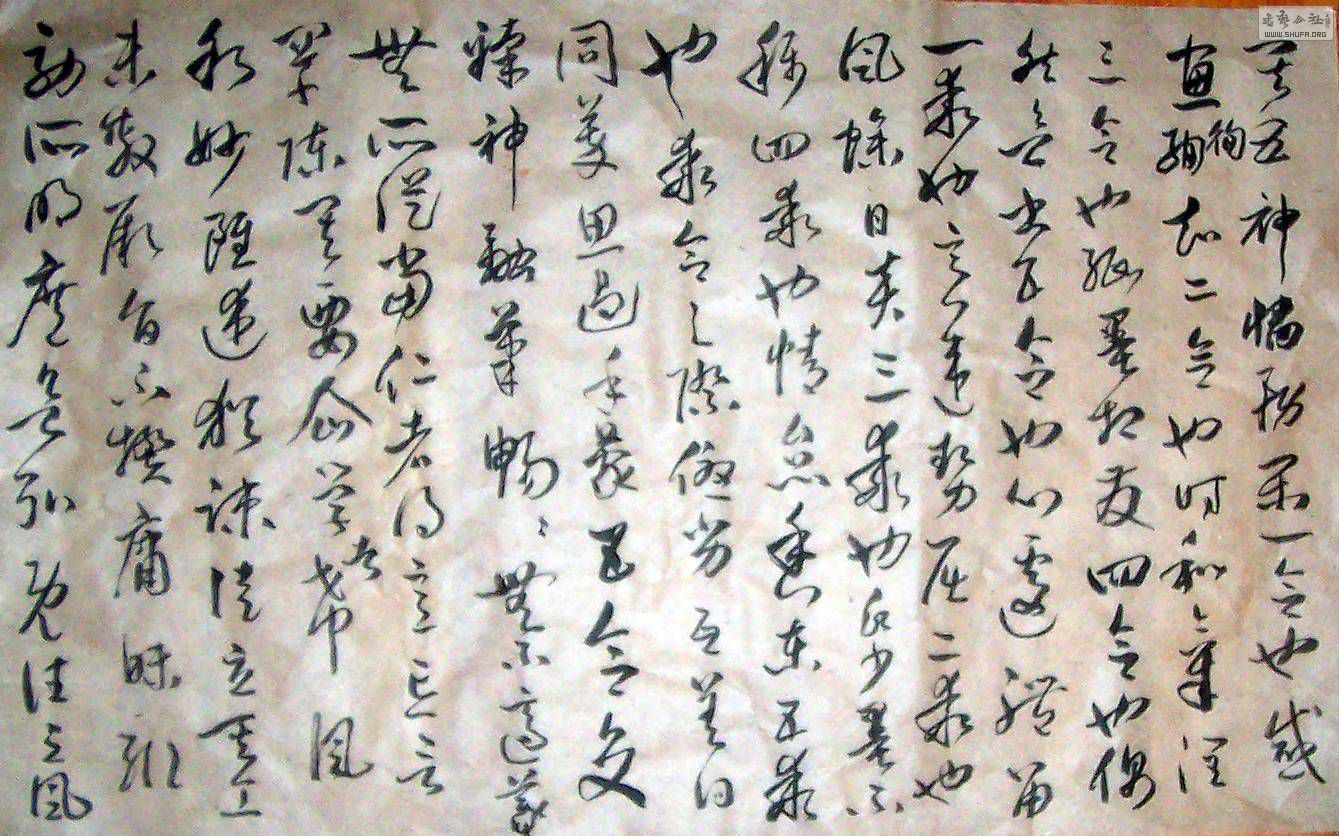 其五神怡務閑一合也感
惠徇知二合也時和氣潤
三合也紙墨相發四合也偶
然欲書五合也心遽體留
一乖也意違勢屈二乖也
風燥日炎三乖也紙墨不
稱四乖也情怠手闌五乖
也乖合之際優劣互差
同萃思遏手蒙五合交
臻神融筆暢〻無不適蒙
無所從當仁者得意忘言
罕陳其要企學者希風
敘妙雖述猶疎徒立其工
未敷厥旨不揆庸昧輒
効所明庶欲弘既往之風
WWW.SHUFA.ORG